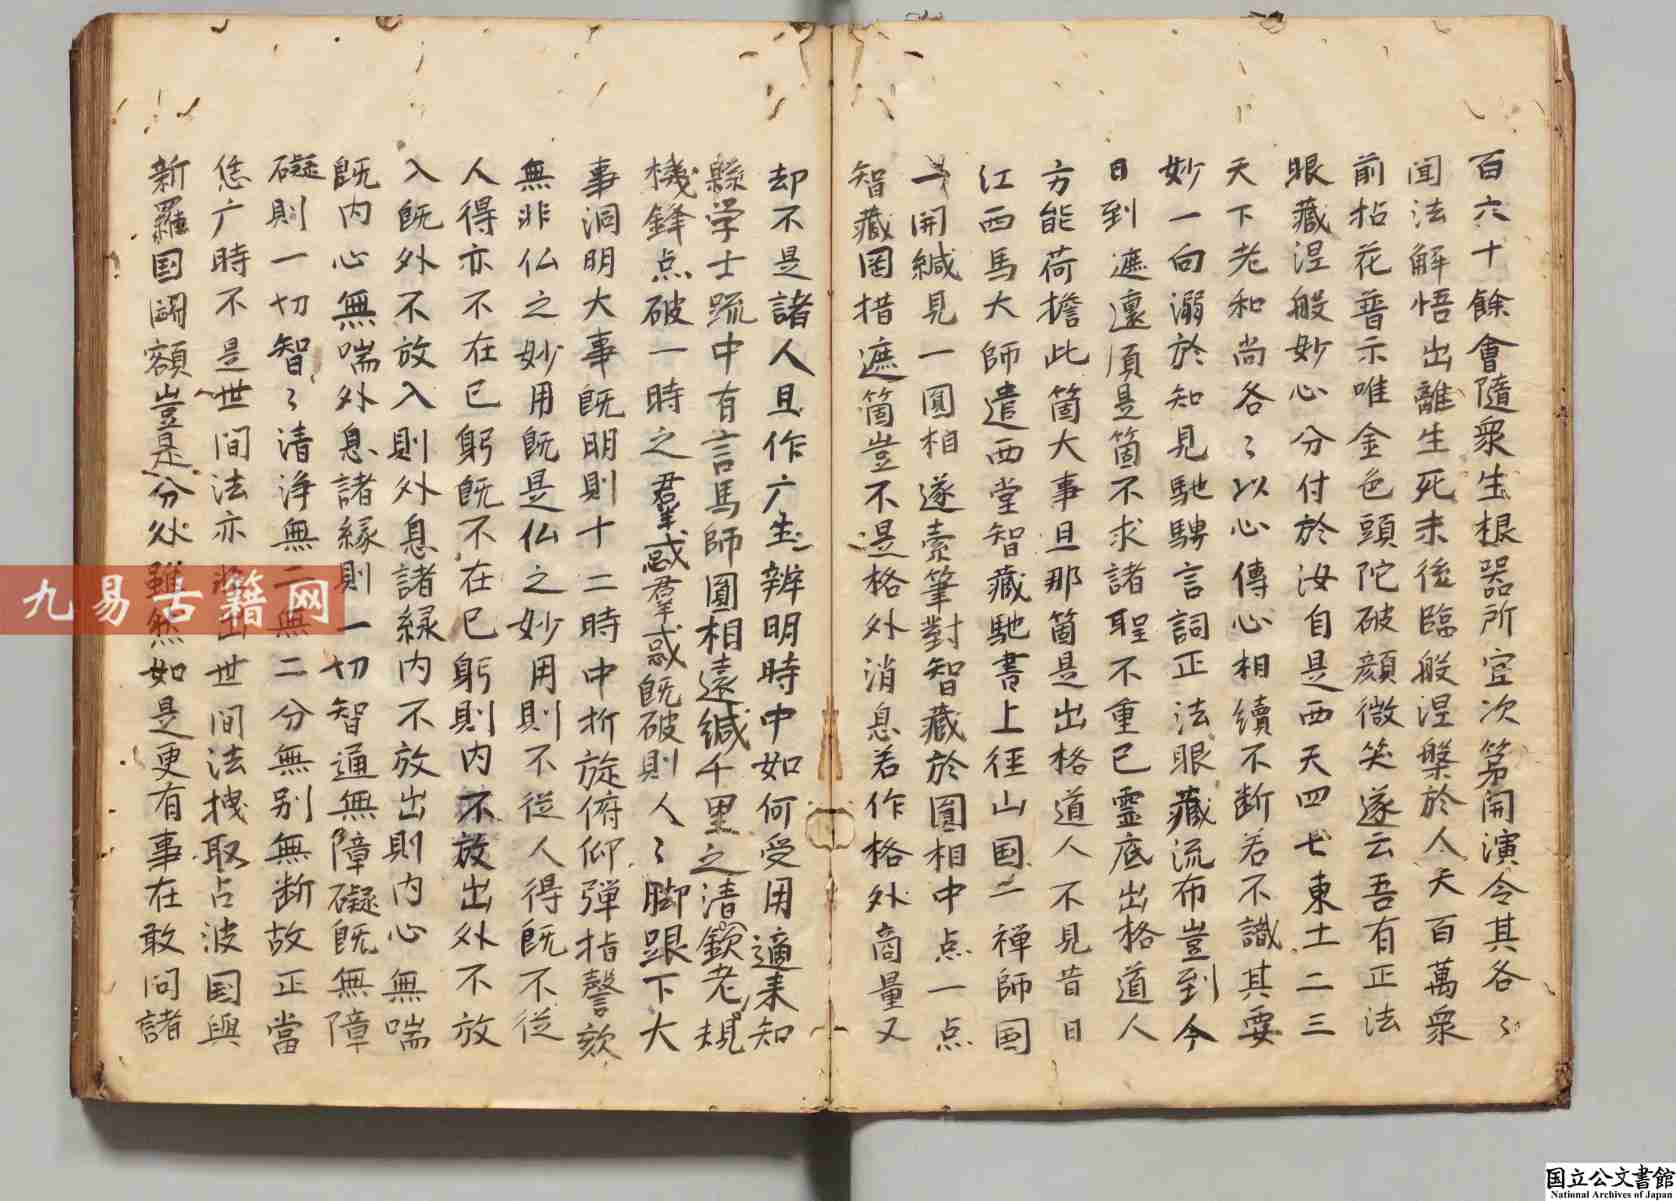 百六十餘會隨衆生根器所宜次第開演令其各〻
聞法解悟出離生死末後臨般涅槃於人天百萬衆
前拈花普示唯金色頭陀破顔微笑遂云吾有正法
眼藏涅般妙心分付於汝自是西天四七東土二三
天下老和尚各〻以心傳心相續不断若不識其要
妙一向溺於知見馳騁言詞正法眼藏流布豈到今
日到遮裏須是箇不求諸聖不重已靈底出格道人
方能荷擔此箇大事且那箇是出格道人不見昔日
江西馬大師遣西堂智藏馳書上径山国一禅師国
一開緘見一圓相遂索筆對智藏於圓相中点一点
智藏罔措遮箇豈不是格外消息若作格外商量又
却不是諸人且作广生辨明時中如何受用適来知
縣学士䟽中有言馬師圓相遠緘千里之清欽老規
機鋒点破一時之羣惑羣惑既破則人〻脚跟下大
事洞明大事既明則十二時中折旋俯仰弾指謦欬
無非仏之妙用既是仏之妙用則不従人得既不従
人得亦不在已躬既不在已躬則内不放出外不放
入既外不放入則外息諸縁内不放出則内心無喘
既内心無喘外息諸縁則一切智通無障礙既無障
礙則一切智〻清浄無二無二分無别無断故正當
恁广時不是世间法亦出世间法拽取占波国與
新羅国闘額豈是分外雖然如是更有事在敢问諸
九易古籍网
国立公文書館
National Archives of Japan